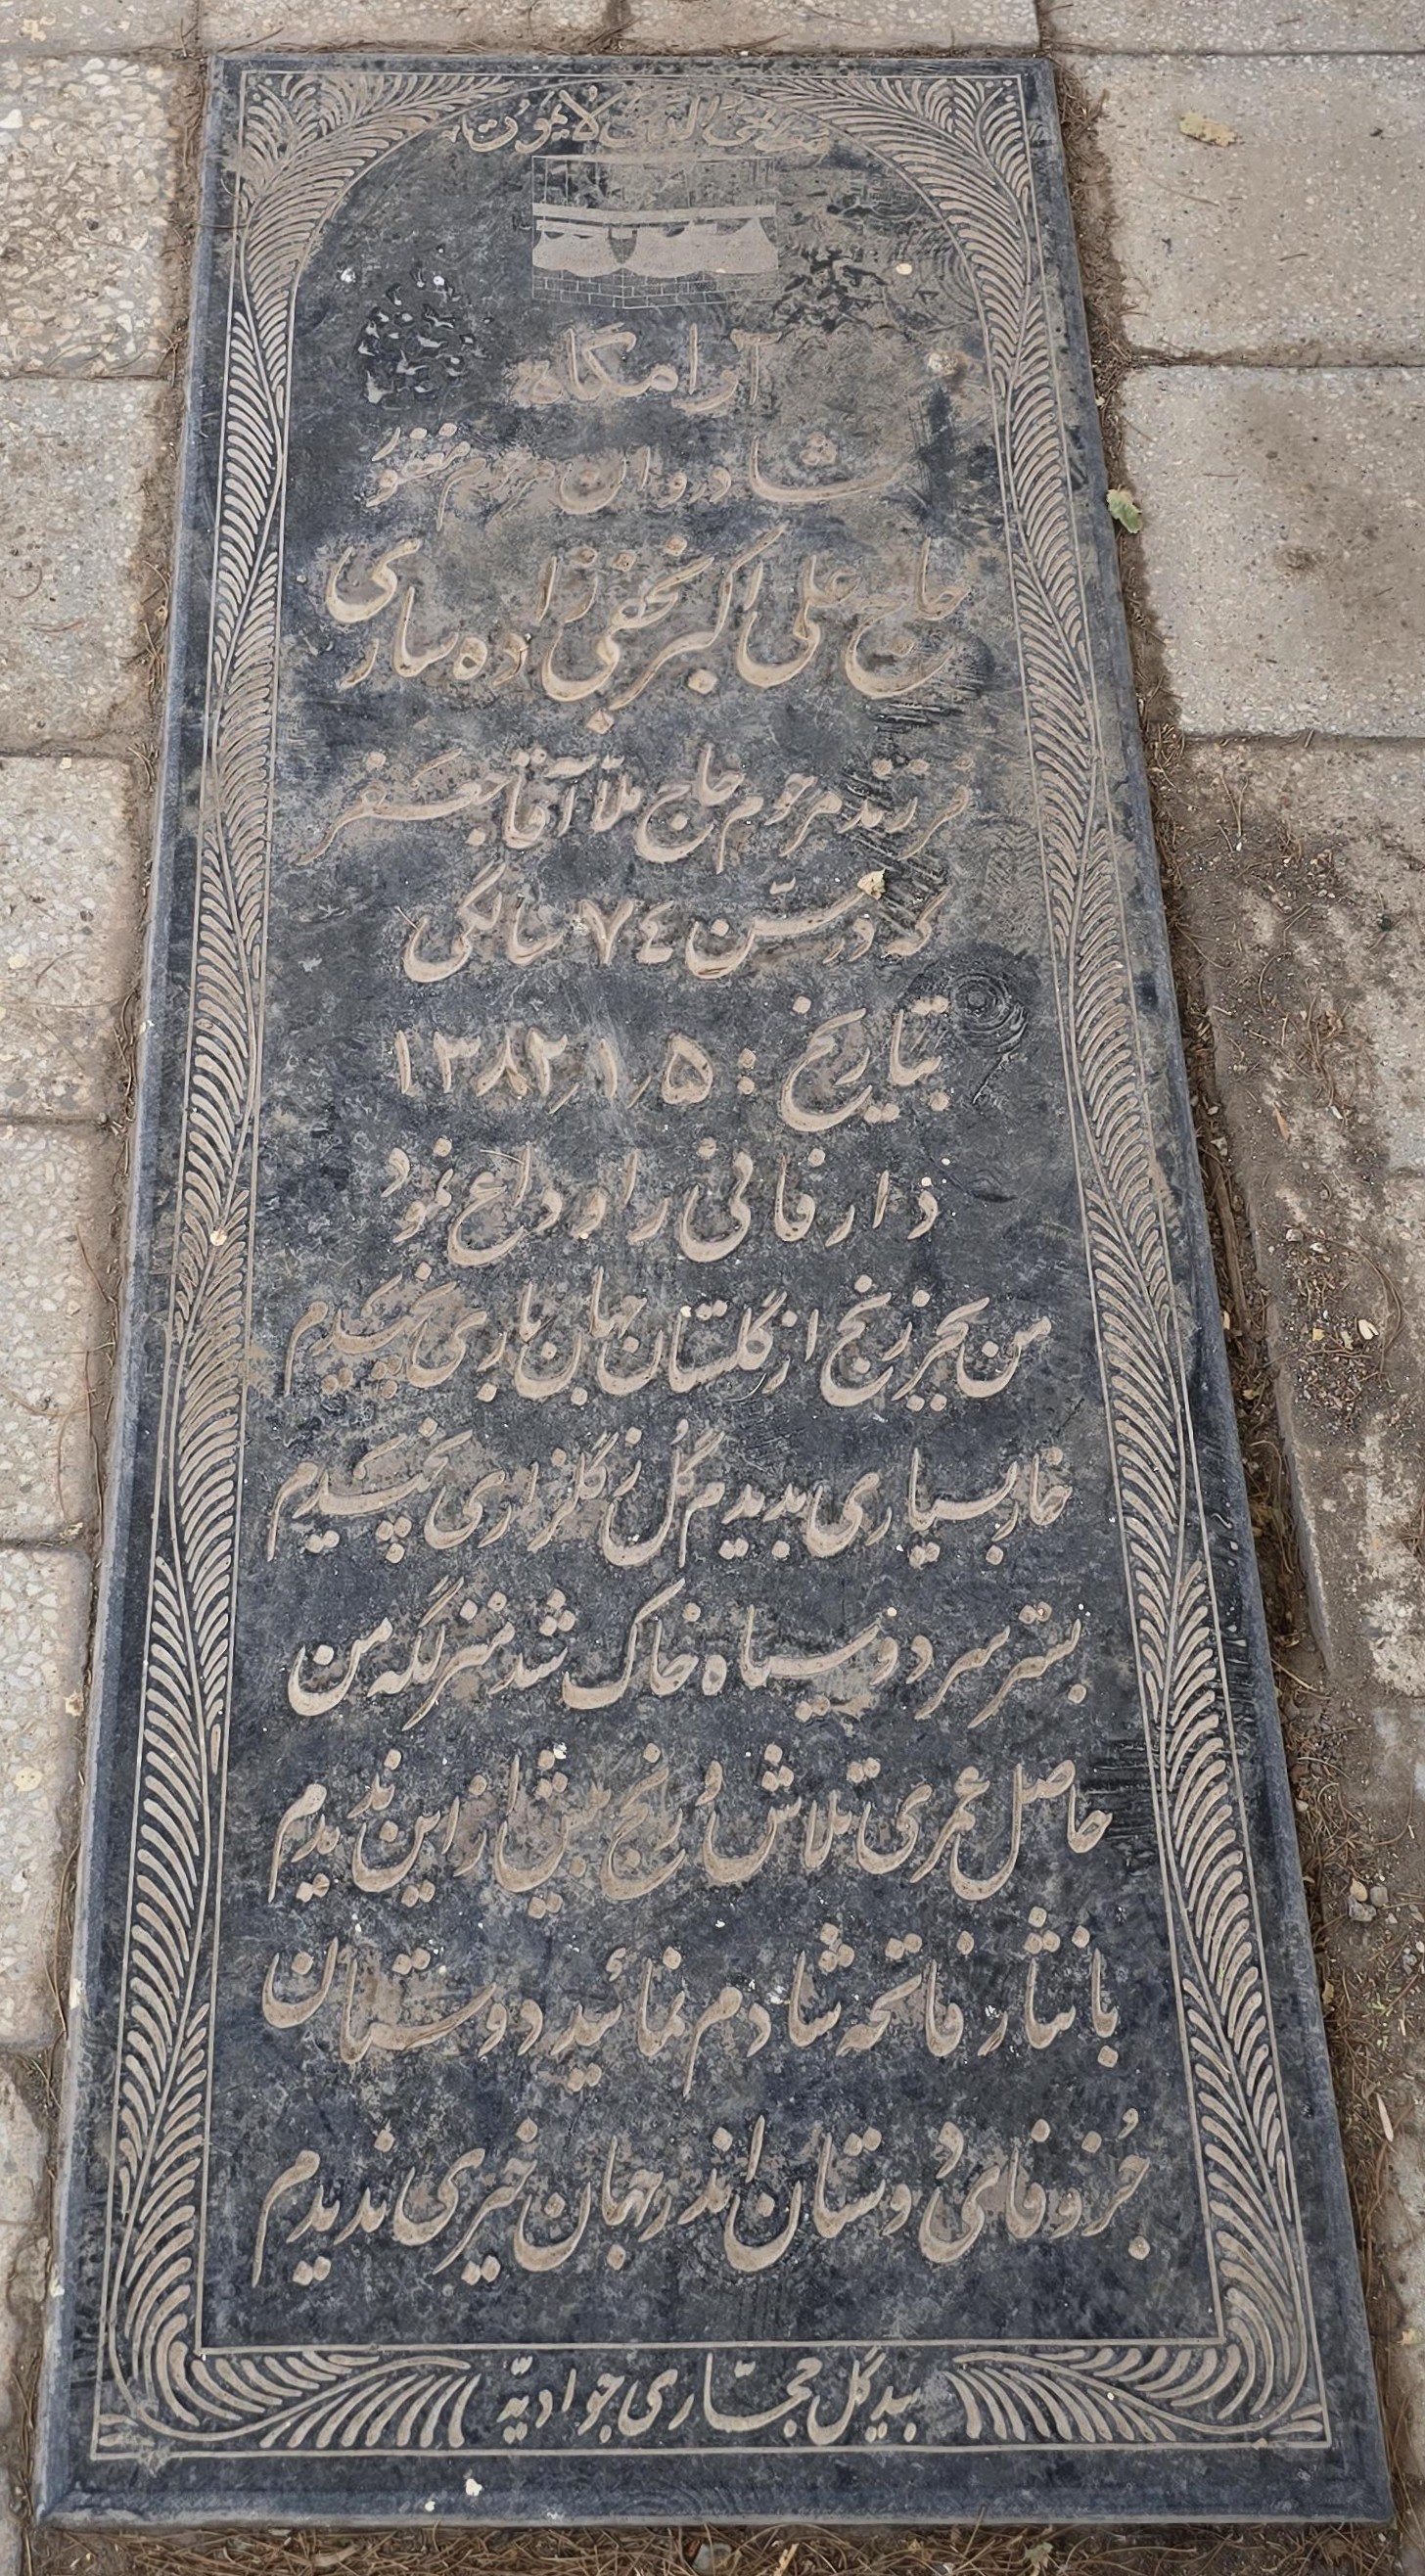 هوالحی الذی لا یموت
آرامگاه
شادروان مرحوم مغفور
حاج علی اکبر نجفی زاده ساری
فرزند مرحوم حاج ملا آقا جعفر
که در سن ٧٤ سالگی
بتاریخ : ۵/۱/۱۳۸۲
دار فانی را وداع نمود
من بجز رنج از گلستان جهان باری نچیدم
خار بسیاری بدیدم گل ز گلزاری نچیدم
بستر سرد و سیاه خاک شد منزلگه من
حاصل عمری تلاش و رنج بیش از این ندیدم
با نثار فاتحه شادم نمائید دوستان
جز وفای دوستان اندر جهان خیری ندیدم
بیدگل حجاری جوادیه